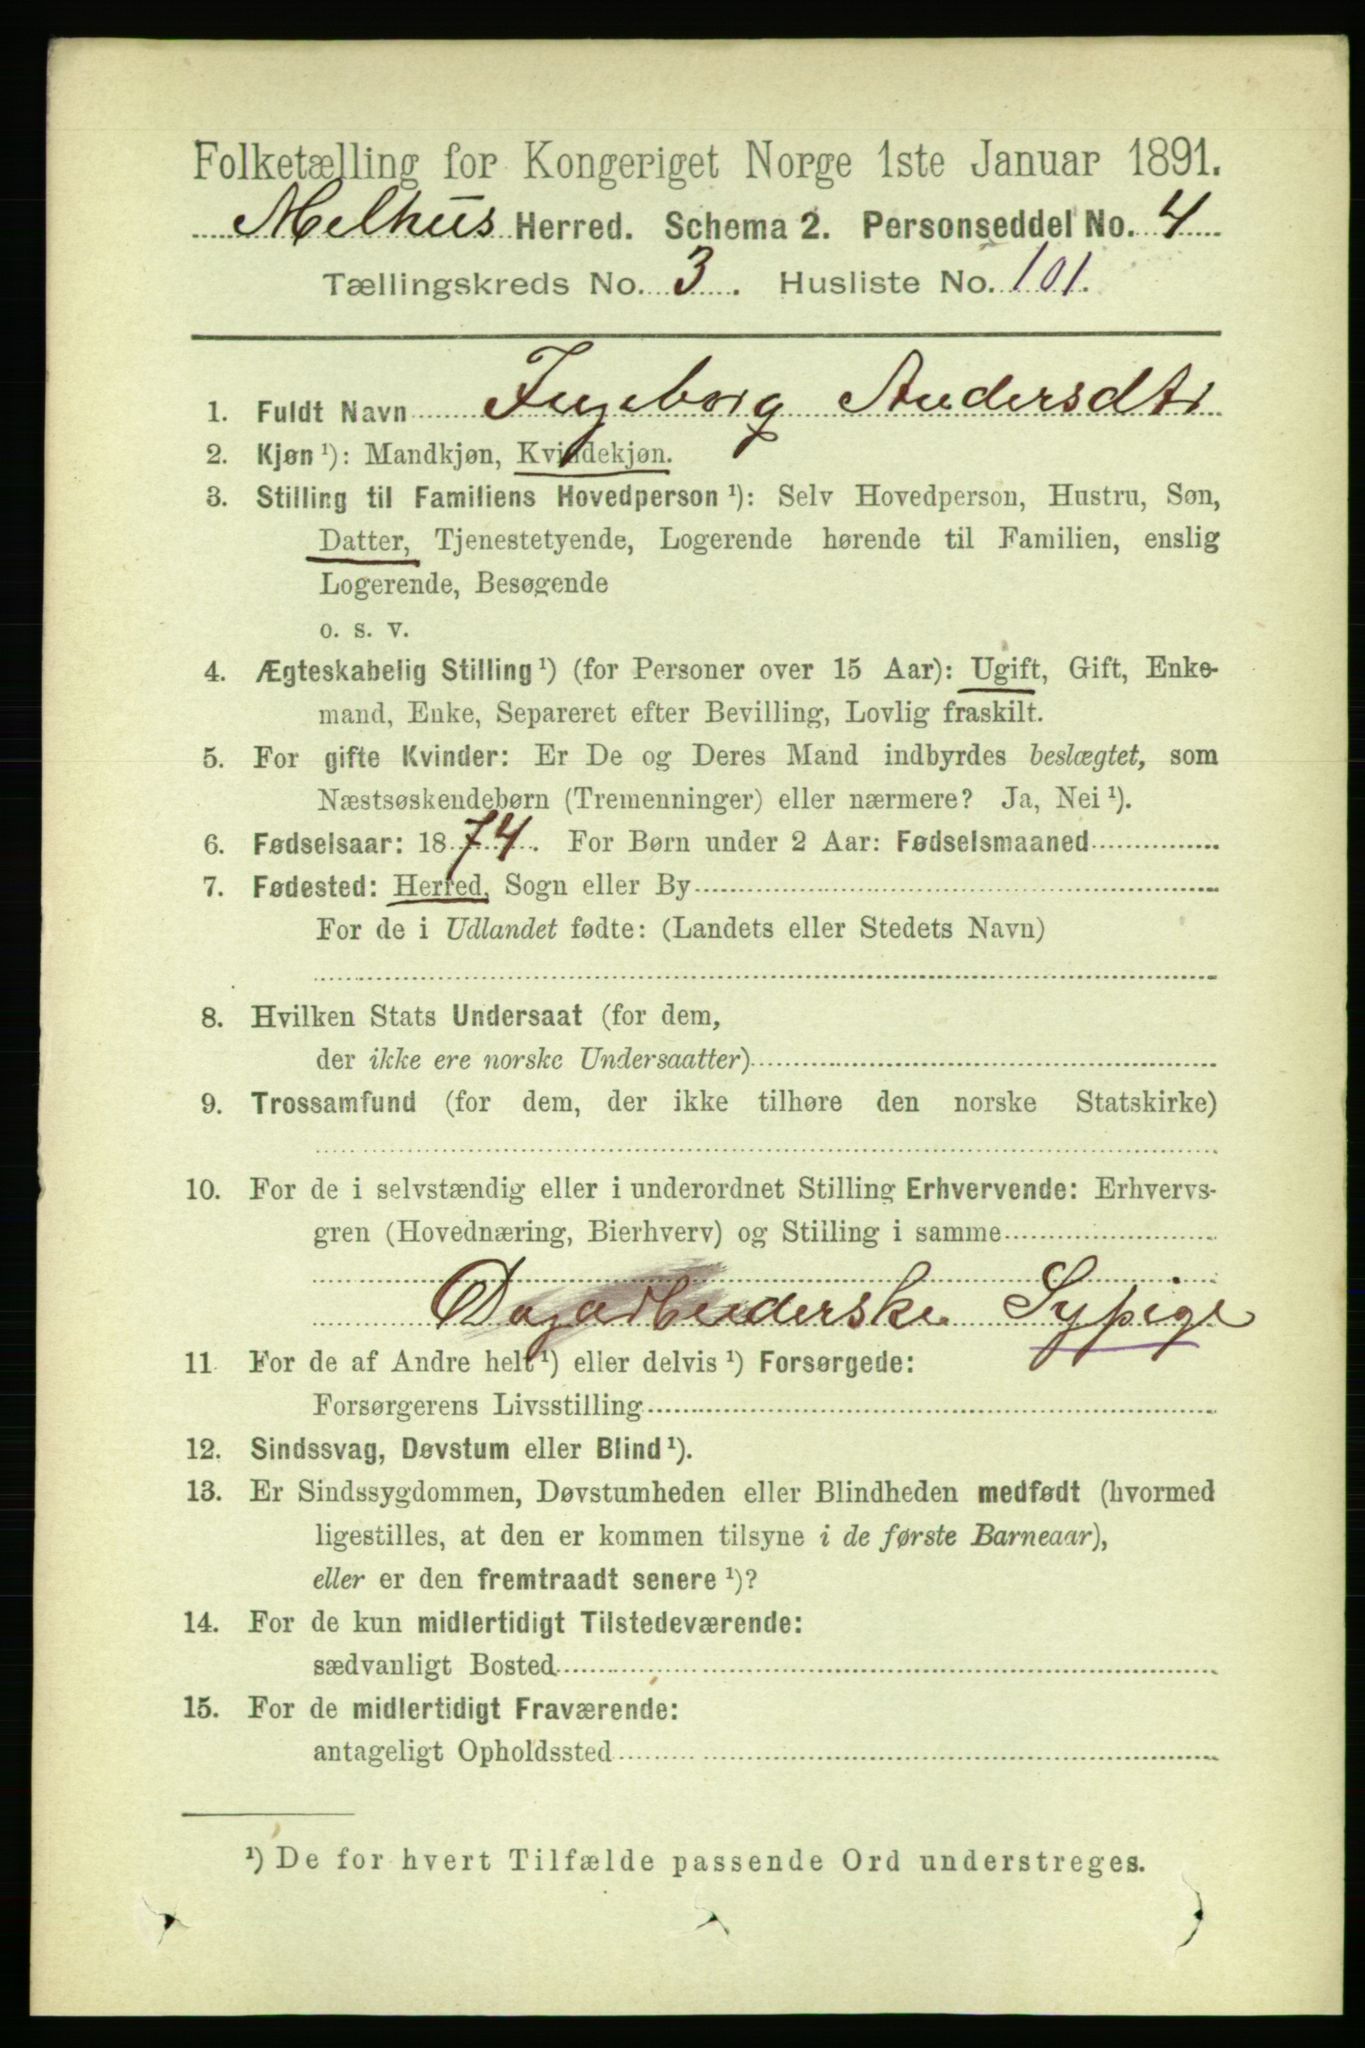 Folketælling for Kongeriget Norge 1ste Januar 1891.
Melhus Herred. Schema 2. Personseddel No. 4
Tællingskreds No. 3. Husliste No. 101.
1. Fuldt Navn Ingeborg Andersdtr
2. Kjøn ¹): Mandkjøn, Kvindekjøn.
3. Stilling til Familiens Hovedperson ¹): Selv Hovedperson, Hustru, Søn,
Datter, Tjenestetyende, Logerende hørende til Familien, enslig
Logerende, Besøgende
o. s. v.
4. Ægteskabelig Stilling ¹) (for Personer over 15 Aar): Ugift, Gift, Enke-
mand, Enke, Separeret efter Bevilling, Lovlig fraskilt.
5. For gifte Kvinder: Er De og Deres Mand indbyrdes beslægtet, som
Næstsøskendebørn (Tremenninger) eller nærmere? Ja, Nei ¹).
6. Fødselsaar: 1874. For Børn under 2 Aar: Fødselsmaaned
7. Fødested: Herred, Sogn eller By
For de i Udlandet fødte: (Landets eller Stedets Navn)
8. Hvilken Stats Undersaat (for dem,
der ikke ere norske Undersaatter)
9. Trossamfund (for dem, der ikke tilhøre den norske Statskirke)
10. For de i selvstændig eller i underordnet Stilling Erhvervende: Erhvervs-
gren (Hovednæring, Bierhverv) og Stilling i samme
Dagarbeiderske Sypige
11 For de af Andre helt ¹) eller delvis ¹) Forsørgede:
Forsørgerens Livsstilling
12. Sindssvag, Døvstum eller Blind ¹).
13. Er Sindssygdommen, Døvstumheden eller Blindheden medfødt (hvormed
ligestilles, at den er kommen tilsyne i de første Barneaar),
eller er den fremtraadt senere ¹)?
14. For de kun midlertidigt Tilstedeværende:
sædvanligt Bosted
15. For de midlertidigt Fraværende:
antageligt Opholdssted
¹) De for hvert Tilfælde passende Ord understreges.